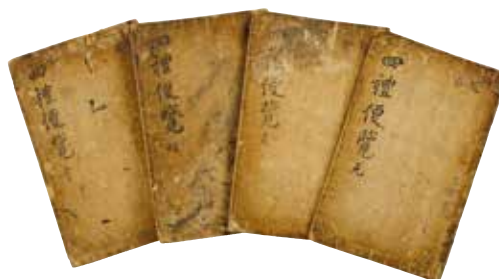 四禮便覽
四禮便覽
禮便覽
四禮便覽 元